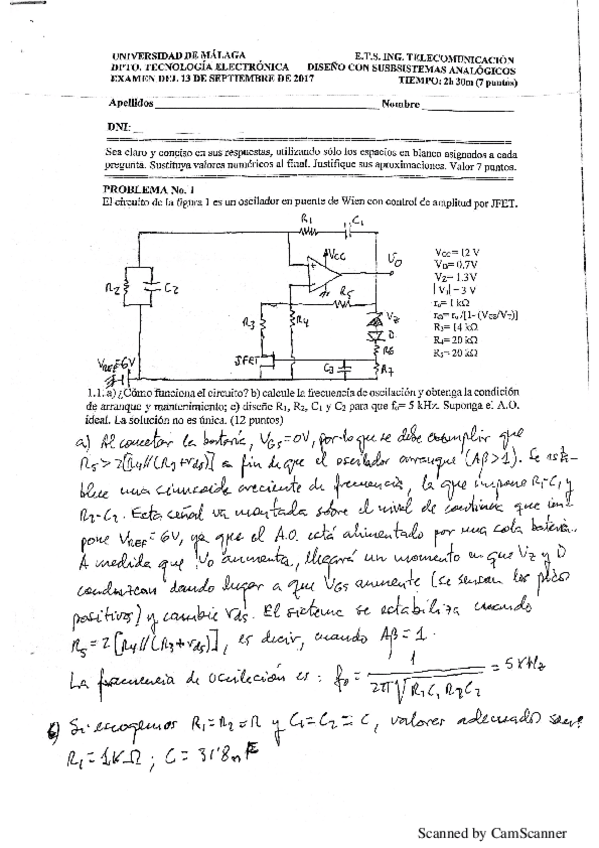 UNIVERSIDAD DE MÁLAGA E.T.S. ING. TELECOMUNICACIÓN
DPTO. TECNOLOGÍA ELECTRÓNICA DISEÑO CON SUSBSISTEMAS ANALÓGICOS
EXAMEN DEL 13 DE SEPTIEMBRE DE 2017 TIEMPO: 2h 30m (7 puntos)
Apellidos Nombre
DNI:
Sea claro y conciso en sus respuestas, utilizando sólo los espacios en blanco asignados a cada
pregunta. Sustituya valores numéricos al final. Justifique sus aproximaciones. Valor 7 puntos.
PROBLEMA No. 1
El circuito de la figura 1 es un oscilador en puente de Wien con control de amplitud por JFET.
R1 C1
VCC
VO
R2 C2
R5
R3 R4
VZ
D
JFET
R6
C3
R7
VREF=6V
VCC= 12 V
VD= 0,7V
VZ= 1.3V
R3= 14 kΩ
R4= 20 kΩ
R5= 20 kΩ
1.1. a) ¿Cómo funciona el circuito? b) calcule la frecuencia de oscilación y obtenga la condición
de arranque y mantenimiento; c) diseñe R1, R2, C1 y C2 para que f0= 5 kHz. Suponga el A.O.
ideal. La solución no es única. (12 puntos)
a) Al conectar la batería, VGS=0V, por lo que se debe cumplir que
R5>2[R4//(R3+rds)] a fin de que el oscilador arranque (Aβ>1). Se esta-
blece una sinusoide creciente de frecuencia, la que impone R1-C1 y
R2-C2. Esta señal va montada sobre el nivel de continua que im-
pone VREF=6V, ya que el A.O. está alimentado por una sola batería.
A medida que Vo aumenta, llegará un momento en que VZ y D
conduzcan dando lugar a que VGS aumente (se sensan los picos
positivos) y cambie rds. El sistema se estabiliza cuando
R5=2[R4//(R3+rds)], es decir, cuando Aβ=1.
La frecuencia de oscilación es: f0= 1/2π√R1C1R2C2 = 5kHz
Si escogemos R1=R2=R y C1=C2=C, valores adecuados son:
R1=1KΩ; C=31'8nF
Scanned by CamScanner